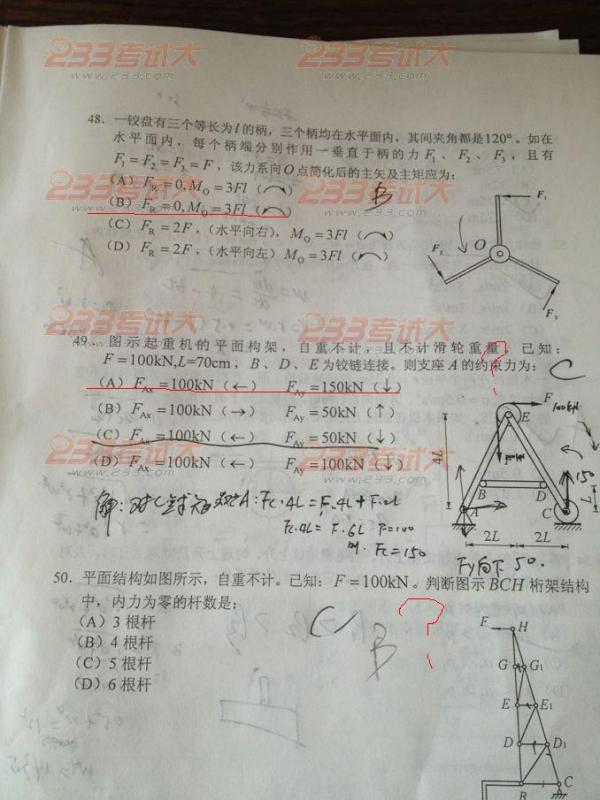 233考试大 233考试大 233考试大
www.233.com www.233.com www.233.com
48. 一铰盘有三个等长为l的柄，三个柄均在水平面内，其间夹角都是120°。如在
水平面内，每个柄端分别作用一垂直于柄的力F₁、F₂、F₃，且有
F₁=F₂=F₃=F，该力系向O点简化后的主矢及主矩应为：
(A) F_R=0, M_O=3Fl (↷)
(B) F_R=0, M_O=3Fl (↶)
B
(C) F_R=2F，(水平向右)，M_O=3Fl (↷)
(D) F_R=2F，(水平向左) M_O=3Fl (↶)
F₁
O
F₂
F₃
49. 图示起重机的平面构架，自重不计，且不计滑轮重量，已知：
F=100kN,L=70cm，B、D、E为铰链连接。则支座A的约束力为：
C
(A) F_Ax=100kN (←) F_Ay=150kN (↓)
(B) F_Ax=100kN (→) F_Ay=50kN (↑)
(C) F_Ax=100kN (←) F_Ay=50kN (↓)
(D) F_Ax=100kN (←) F_Ay=100kN (↓)
F
E
4L
B D
A C
150
L
2L 2L
A: Fc·4L=F·4L+F·2L
Fc·4L=F·6L F=100
Fc=150
Fy向下50.
50. 平面结构如图所示，自重不计。已知：F=100kN。判断图示BCH桁架结构
中，内力为零的杆数是：
(A) 3根杆
(B) 4根杆
(C) 5根杆
(D) 6根杆
C
B
?
F H
G G₁
E E₁
D D₁
B C